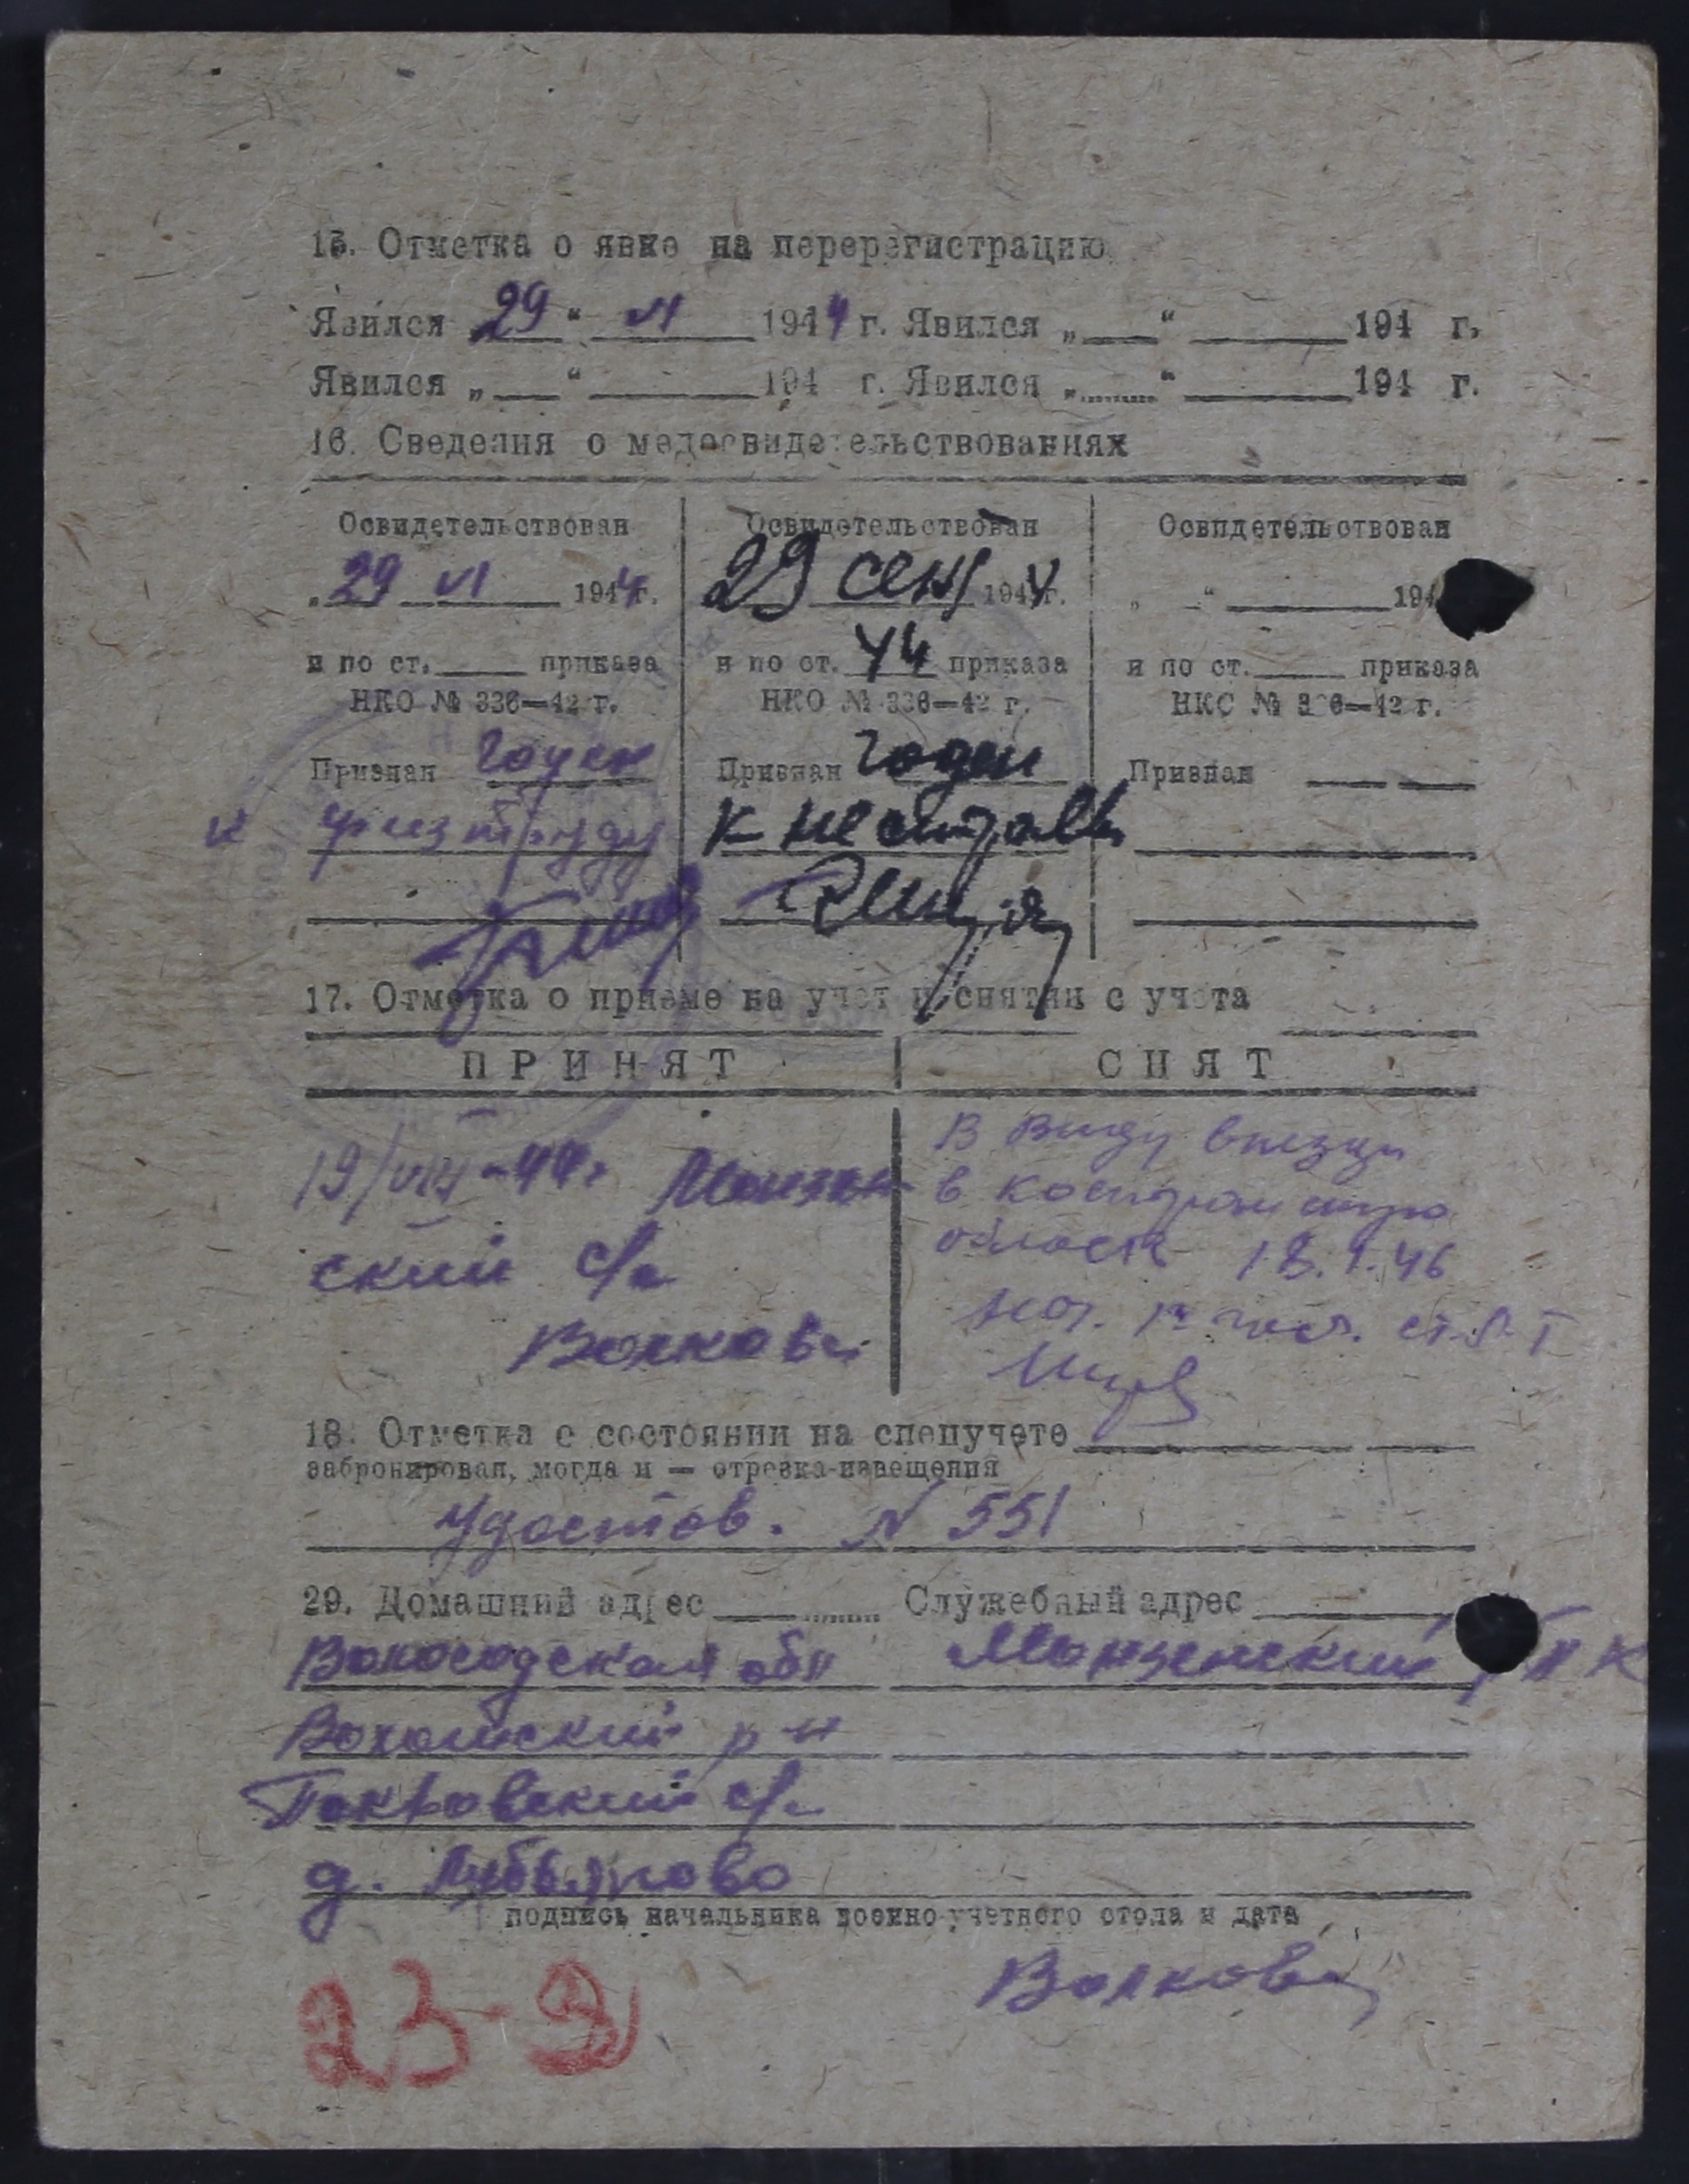 15. Отметка о явке на перерегистрацию
Явился „29“ VI 1944 г. Явился „ “ 194 г.
Явился „ “ 194 г. Явился „ “ 194 г.
16. Сведения о медосвидетельствованиях
Освидетельствован Освидетельствован Освидетельствован
„29 VI 1944г. 29 сент 1944г. „ “ 194
и по ст. приказа и по ст. 44 приказа и по ст. приказа
НКО № 336—42 г. НКО № 336—42 г. НКО № 336—42 г.
Признан годен Признан годен Признан
к физтруду к нестроев
17. Отметка о приеме на учет и снятии с учета
ПРИНЯТ СНЯТ
19/VIII-44г
ский с/с
Волкова
В виду
в
область 18.1.46
Нач.
18. Отметка о состоянии на спецучете
забронирован, когда и — отрезка-извещения
Удостов. № 551
29. Домашний адрес Служебный адрес
Вологодская обл Монзенский
Вохомский р-н
Покровский с/с
д.
подпись начальника военно-учетного стола и дата
Волкова
23-9